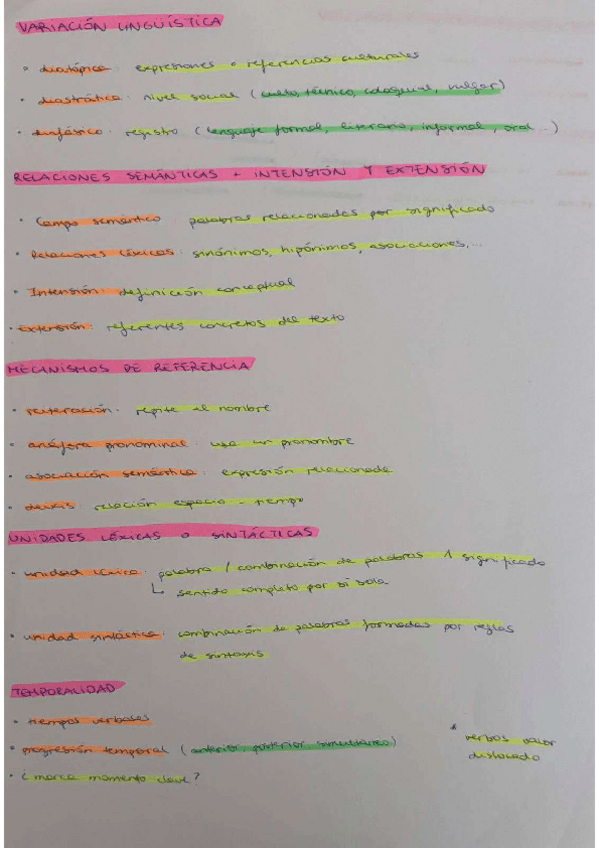 VARIACIÓN LINGÜÍSTICA
• diatópica: expresiones o referencias culturales
• diastrática: nivel social (culto, técnico, coloquial, vulgar)
• diafásica: registro (lenguaje formal, literario, informal, oral...)
RELACIONES SEMÁNTICAS + INTENSIÓN Y EXTENSIÓN
• Campo semántico: palabras relacionadas por significado
• Relaciones léxicas: sinónimos, hipónimos, asociaciones,...
• Intensión: definición conceptual
• extensión: referentes concretos del texto
MECANISMOS DE REFERENCIA
• reiteración: repite el nombre
• anáfora pronominal: usa un pronombre
• asociación semántica: expresión relacionada
• deixis: relación espacio - tiempo
UNIDADES LÉXICAS O SINTÁCTICAS
• unidad léxica: palabra / combinación de palabras 1 significado
↳ sentido completo por sí sola
• unidad sintáctica: combinación de palabras formadas por reglas
de sintaxis
TEMPORALIDAD
• tiempos verbales
• progresión temporal (anterior, posterior, simultáneo)
* verbos valor
dislocado
• ¿marca momento clave?